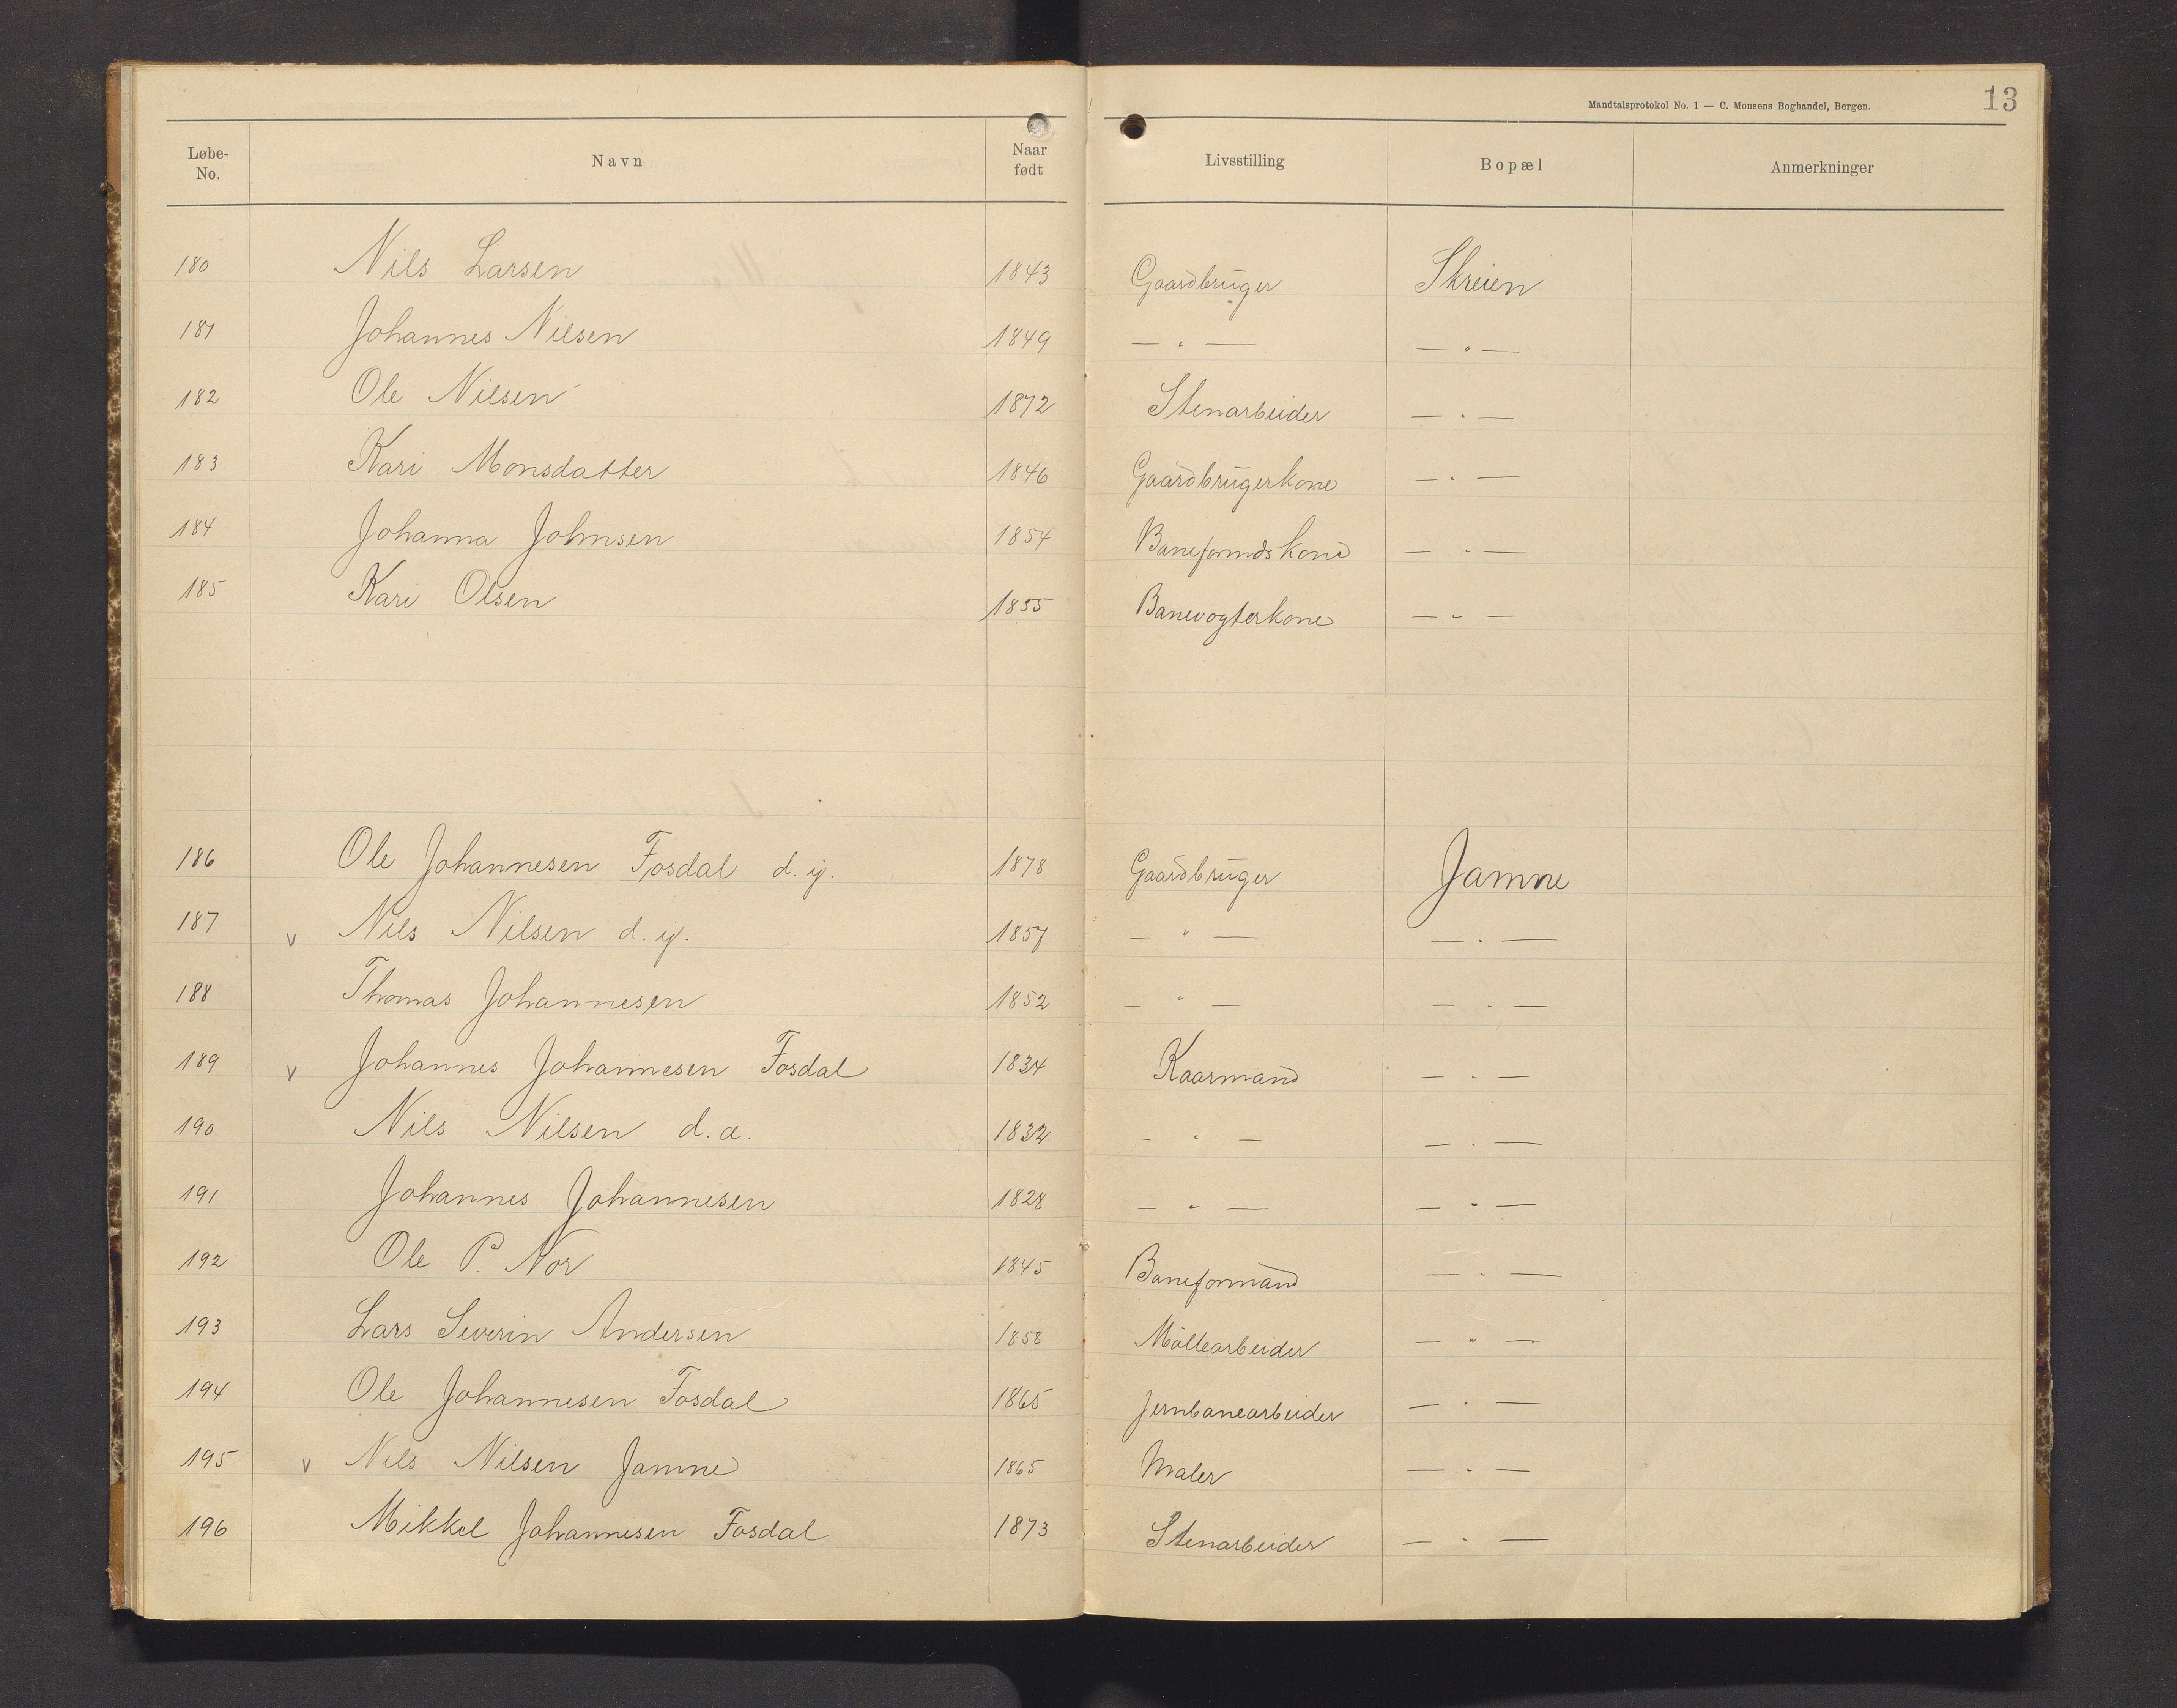 Mandtalsprotokol No. 1 — C. Monsens Boghandel, Bergen. 13
Løbe-No. Navn Naar født Livsstilling Bopæl Anmerkninger
180 Nils Larsen 1843 Gaardbruger Skreien
181 Johannes Nilsen 1849 — " — — " —
182 Ole Nilsen 1872 Stenarbeider — " —
183 Kari Monsdatter 1846 Gaardbrugerkone — " —
184 Johanna Johnsen 1854 Baneformdskone — " —
185 Kari Olsen 1855 Banevogterkone — " —
186 Ole Johannesen Fosdal d. y. 1878 Gaardbruger Jamne
187 v Nils Nilsen d. y. 1857 — " — — " —
188 Thomas Johannesen 1852 — " — — " —
189 v Johannes Johannesen Fosdal 1834 Kaarmand — " —
190 Nils Nilsen d. æ. 1832 — " — — " —
191 Johannes Johannesen 1828 — " — — " —
192 Ole P. Nor 1845 Baneformand — " —
193 Lars Severin Andersen 1858 Möllearbeider — " —
194 Ole Johannesen Fosdal 1865 Jernbanearbeider — " —
195 v Nils Nilsen Jamne 1865 Maler — " —
196 Mikkel Johannesen Fosdal 1873 Stenarbeider — " —